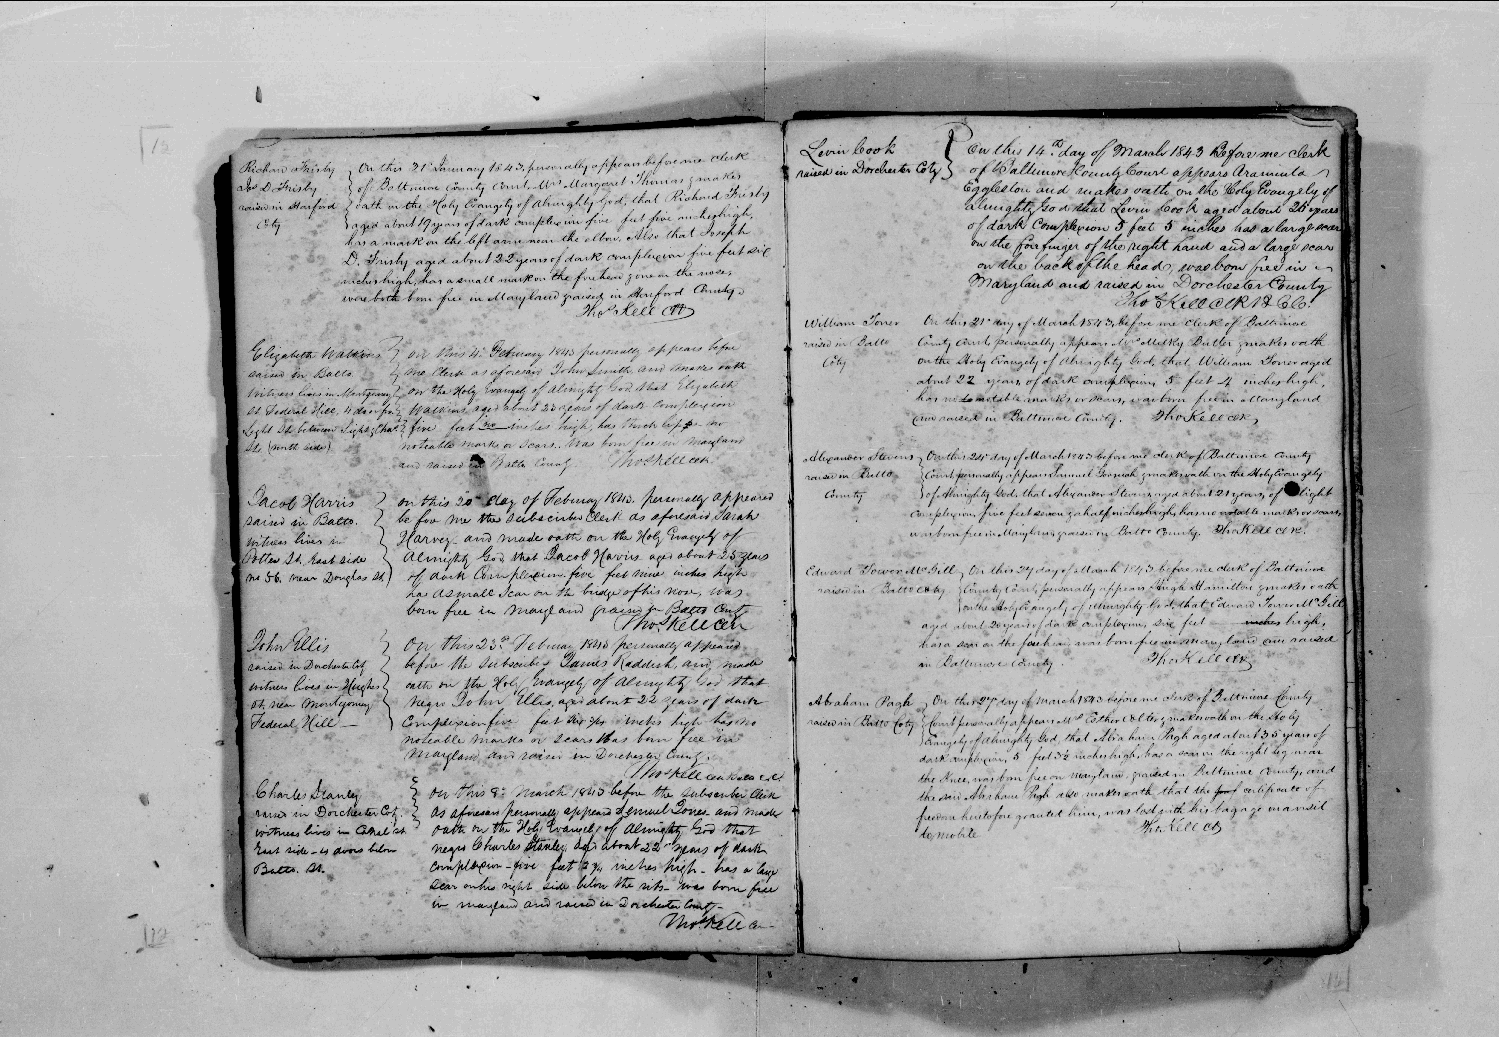 Richard Frisby
Jos D. Frisby
raised in Harford
Coty
On this 31st January 1843, personally appears before me clerk
of Baltimore County Court Mrs Margaret Thomas & makes
oath on the Holy Evangely of Almighty God, that Richard Frisby
aged about 19 years of dark complexion five feet five inches high,
has a mark on the left arm near the elbow. Also that Joseph
D. Frisby aged about 22 years of dark complexion five feet six
inches high, has a small mark on the forehead & one on the nose,
were both born free in Maryland & raised in Harford County.
Thos Kell Clk
Elizabeth Watkins
raised in Balto.
Witness lives in Montgomery
St Federal Hill, 4 doors from
Light St. between Light & Chas
Sts (north side)
on this 4th February 1843 personally appears before
me Clerk as aforesaid John Smith, and makes oath
on the Holy Evangely of Almighty God that Elizabeth
Watkins, aged about years of dark complexion
five feet no inches high, has thick lips no
noticable marks or scars. Was born free in Maryland
and raised in Balto County Thos Kell Clk
Jacob Harris
raised in Balto.
Witness lives in
Potter St. East side
no 56. near Douglas St.
on this 20th day of February 1843. personally appeared
before me the subscriber Clerk as aforesaid Sarah
Harvey and made oath on the Holy Evangely of
Almighty God, that Jacob Harris aged about 25 years
of dark Complexion five feet nine inches high
has a small Scar on the bridge of his nose, was
born free in Maryland & raised in Balto County
Thos Kell Clk
John Ellis
raised in Dorchester Coty
witness lives in Hughes
St. near Montgomery
Federal Hill
On this 23rd February 1843 personally appeared
before the subscriber James Reddish, and made
oath on the Holy Evangely of Almighty God that
Negro John Ellis, aged about 22 years of dark
Complexion five feet inches high has no
noticable marks or scars Was born free in
Maryland and raised in Dorchester County.
Thos Kell
Charles Stanley
raised in Dorchester Coty.
witness lives in Canal St
East side doors below
Balto. St.
on this 8th March 1843 before the subscriber Clerk
as aforesaid personally appeared Lemuel Jones and made
oath on the Holy Evangely of Almighty God that
negro Charles Stanley, aged about 22 years of dark
complexion five feet inches high has a large
scar on his right side below the ribs was born free
in Maryland and raised in Dorchester County
Thos Kell Clk
Levin Cook
raised in Dorchester Coty
On this 14th day of March 1843 Before me Clerk
of Baltimore County Court appears Araminta
Eggleston and makes oath on the Holy Evangely of
almighty God that Levin Cook aged about 25 years
of dark Complexion 5 feet 5 inches has a large scar
on the fore finger of the right hand and a large scar
on the back of the head, was born free in
Maryland and raised in Dorchester County
Thos Kell Clk
William Toner
raised in Balto
Coty
On this 21st day of March 1843, before me Clerk of Baltimore
County Court, personally appears Butler & makes oath
on the Holy Evangely of Almighty God, that William Toner aged
about 22 years, of dark complexion, 5 feet 4 inches high,
has no notable marks or scars, was born free in Maryland
and raised in Baltimore County. Thos Kell Clk
Alexander Stevens
raised in Balto
County
On this 24th day of March 1843 before me clerk of Baltimore County
Court personally appears Samuel & makes oath on the Holy Evangely
of Almighty God, that Alexander Stevens aged about 21 years, of light
complexion, five feet seven & a half inches high, has no notable marks or scars,
was born free in Maryland, & raised in Balto County. Thos Kell Clk.
Edward Tower McGill
raised in Balto Coty
On this 27 day of March 1843 before me clerk of Baltimore
County Court, personally appears Hugh Hamilton & makes oath
on the Holy Evangely, of Almighty God, that Edward Tower McGill
aged about 20 years of dark complexion, six feet inches high,
has a scar on the forehead, was born free in Maryland and raised
in Baltimore County. Thos Kell Clk
Abraham Pugh
raised in Balto Coty
On this 27 day of March 1843 before me clerk of Baltimore County
Court personally appears Mrs Esther Colter, & makes oath on the Holy
Evangely of Almighty God, that Abraham Pugh aged about 35 years of
dark complexion, 5 feet 3½ inches high, has a scar on the right leg near
the knee, was born free in Maryland, & raised in Baltimore County, and
the said Abraham Pugh also makes oath that the certificate of
freedom heretofore granted him, was lost with his baggage on a visit
to Mobile Thos Kell Clk